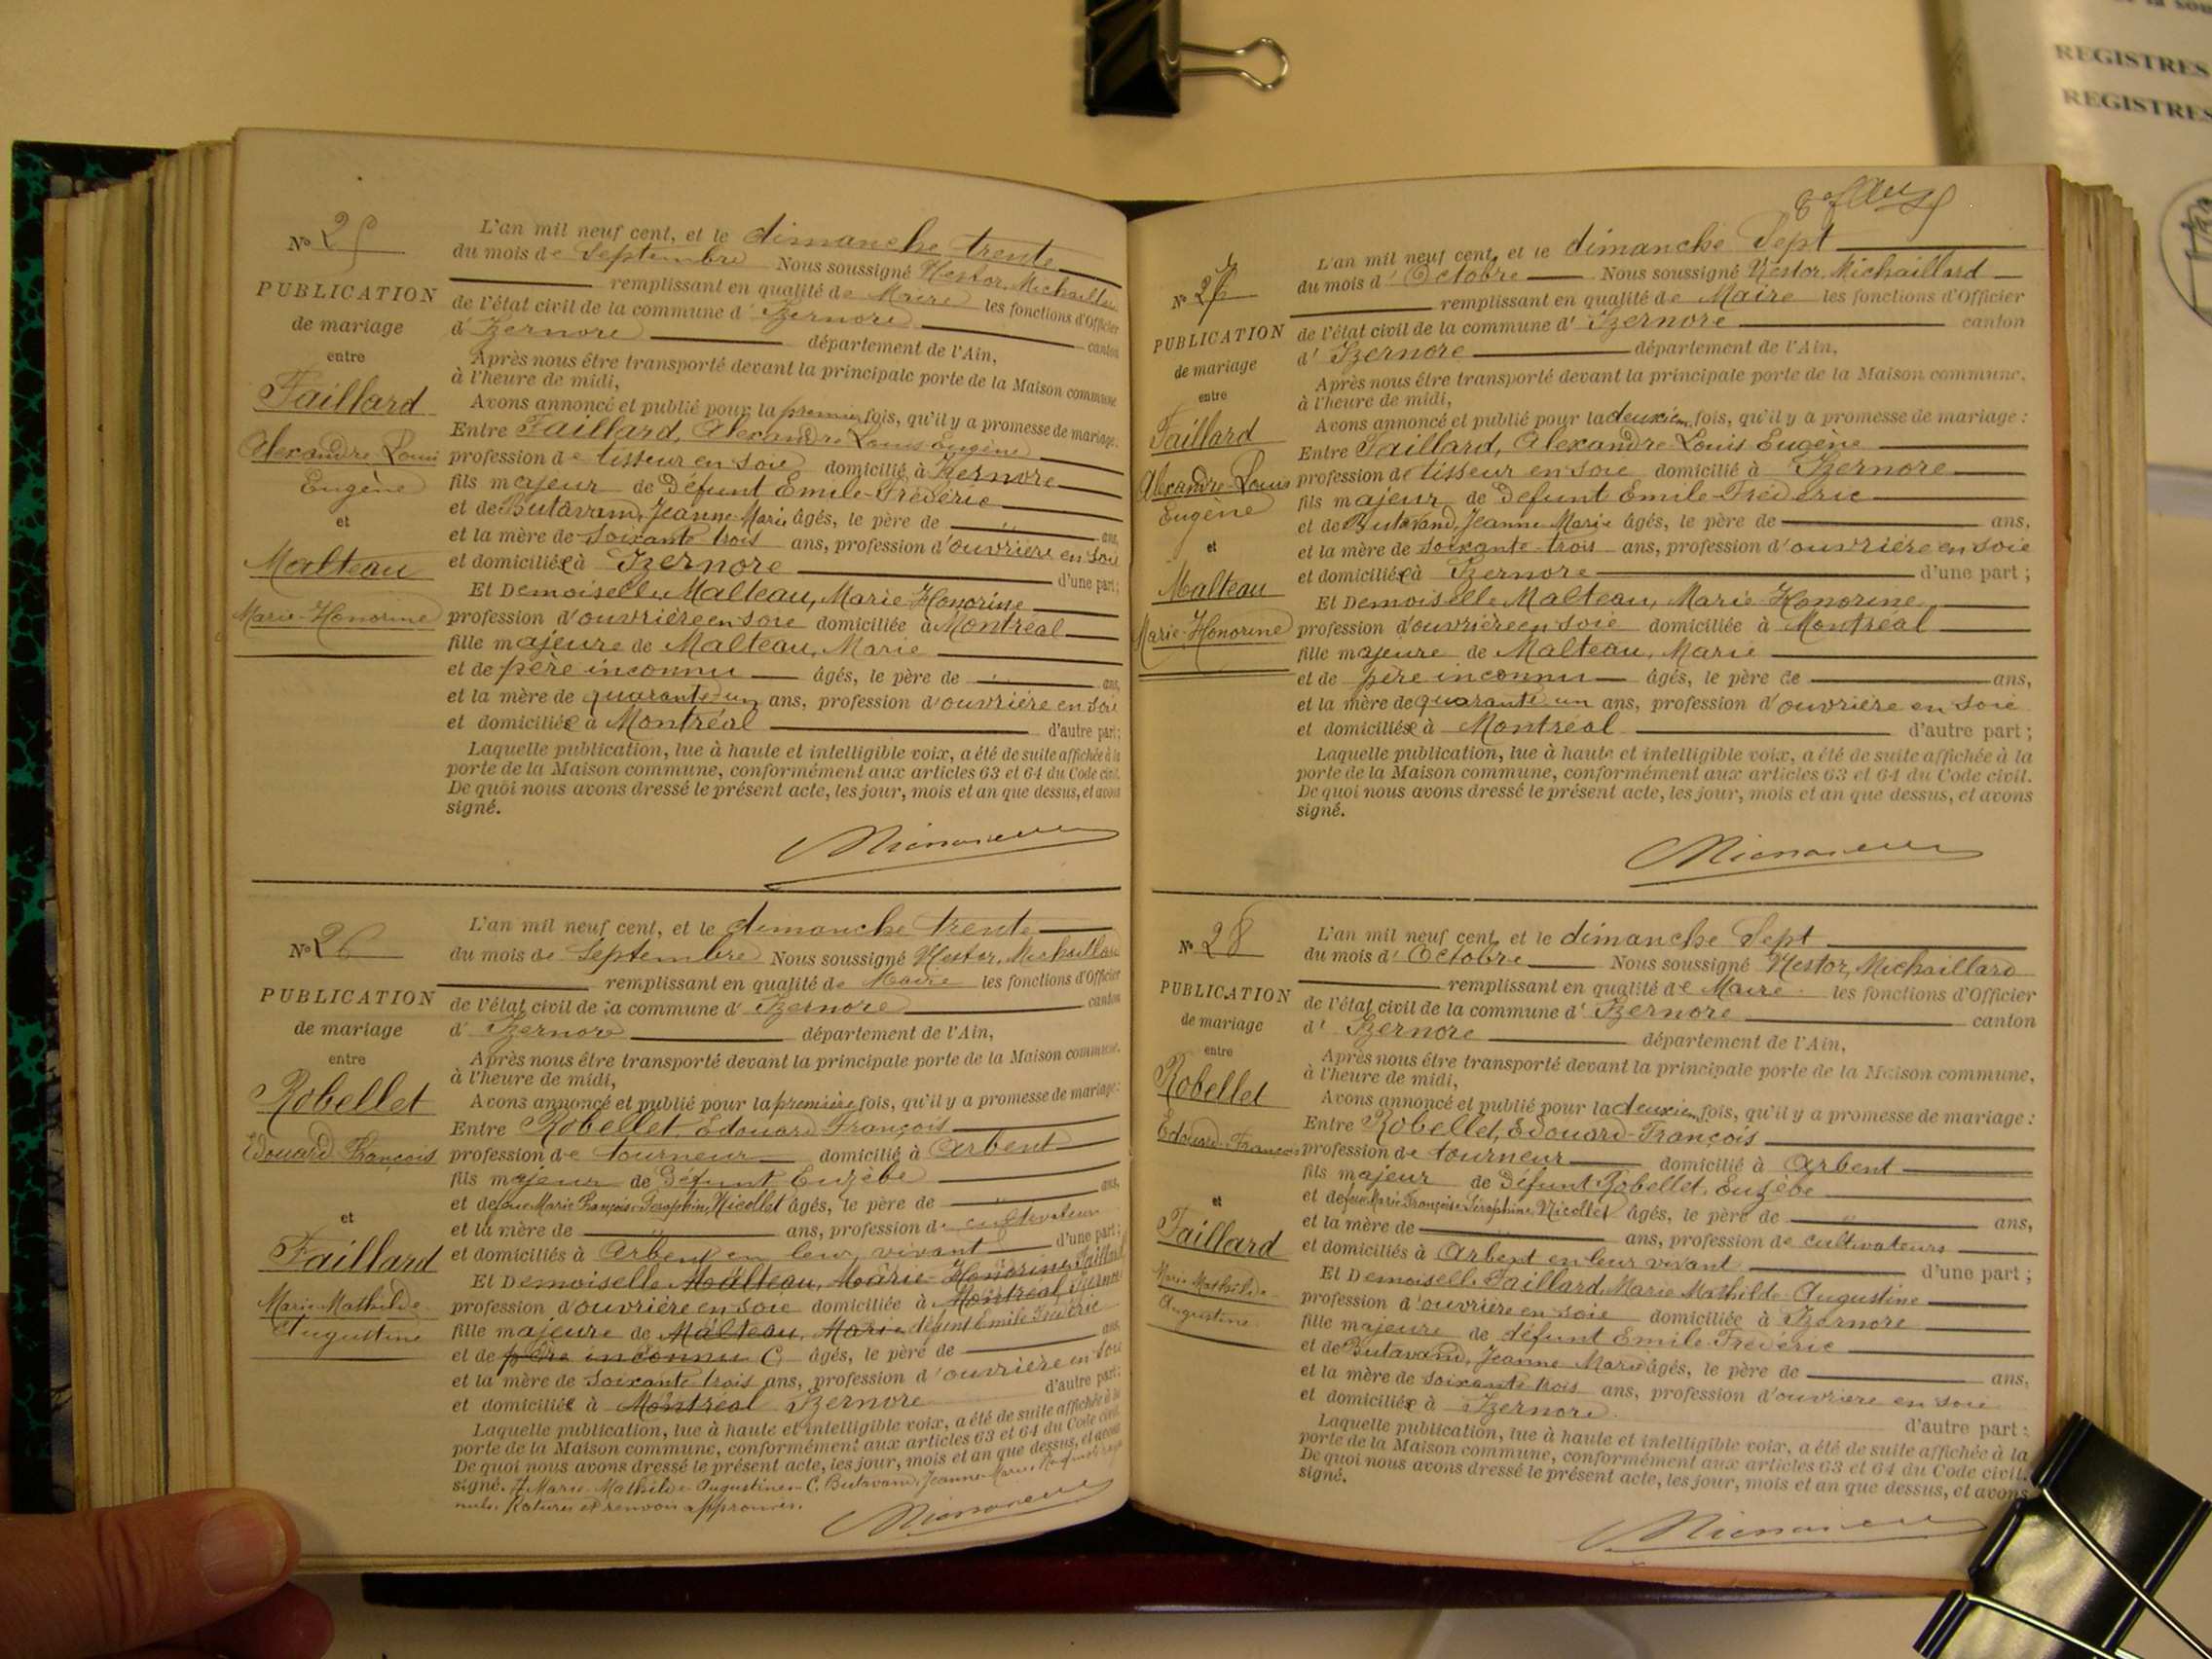 REGISTRES
REGISTRES
Nº 25
PUBLICATION
de mariage
entre
Faillard
Alexandre-Louis
Eugène
et
Malteau
Marie-Honorine
L'an mil neuf cent, et le dimanche trente
du mois de Septembre Nous soussigné Nestor, Michaillard
remplissant en qualité de Maire les fonctions d'Officier
de l'état civil de la commune d' Izernore canton
d' Izernore département de l'Ain,
Après nous être transporté devant la principale porte de la Maison commune
à l'heure de midi,
Avons annoncé et publié pour la premier fois, qu'il y a promesse de mariage.
Entre Faillard, Alexandre Louis Eugène
profession de tisseur en soie domicilié à Izernore
fils majeur de Défunt Emile-Fréderic
et de Butavand, Jeanne-Marie âgés, le père de ans,
et la mère de soixante trois ans, profession d'ouvrière en soie
et domiciliée à Izernore d'une part;
Et Demoiselle Malteau, Marie-Honorine
profession d'ouvrière en soie domiciliée à Montréal
fille majeure de Malteau, Marie
et de père inconnu âgés, le père de ans,
et la mère de quarante-un ans, profession d'ouvrière en soie
et domiciliée à Montréal d'autre part;
Laquelle publication, lue à haute et intelligible voix, a été de suite affichée à la
porte de la Maison commune, conformément aux articles 63 et 64 du Code civil.
De quoi nous avons dressé le présent acte, les jour, mois et an que dessus, et avons
signé.
Nº 26
PUBLICATION
de mariage
entre
Robellet
Edouard François
et
Faillard
Marie-Mathilde
Augustine
L'an mil neuf cent, et le dimanche trente
du mois de Septembre Nous soussigné Nestor, Michaillard
remplissant en qualité de Maire les fonctions d'Officier
de l'état civil de la commune d' Izernore canton
d' Izernore département de l'Ain,
Après nous être transporté devant la principale porte de la Maison commune.
à l'heure de midi,
Avons annoncé et publié pour la première fois, qu'il y a promesse de mariage:
Entre Robellet, Edouard François
profession de tourneur domicilié à Arbent
fils majeur de Défunt Euzèbe
et de feue Marie Françoise Seraphine Nicollet âgés, le père de ans,
et la mère de ans, profession de cultivateurs
et domiciliés à Arbent en leur vivant d'une part;
Et Demoiselle Malteau, Marie-Honorine Faillard
profession d'ouvrière en soie domiciliée à Montréal Izernore
fille majeure de Malteau, Marie défunt Emile Fréderic
et de père inconnu C âgés, le père de ans
et la mère de soixante trois ans, profession d'ouvrière en soie
et domiciliée à Montréal Izernore d'autre part;
Laquelle publication, lue à haute et intelligible voix, a été de suite affichée à la
porte de la Maison commune, conformément aux articles 63 et 64 du Code civil.
De quoi nous avons dressé le présent acte, les jour, mois et an que dessus, et avons
signé. Marie-Mathilde-Augustine C. Butavand, Jeanne-Marie
nuls. Ratures et renvois approuvés.
Nº 27
PUBLICATION
de mariage
entre
Faillard
Alexandre-Louis
Eugène
et
Malteau
Marie-Honorine
L'an mil neuf cent, et le dimanche Sept
du mois d' Octobre Nous soussigné Nestor, Michaillard
remplissant en qualité de Maire les fonctions d'Officier
de l'état civil de la commune d' Izernore canton
d' Izernore département de l'Ain,
Après nous être transporté devant la principale porte de la Maison commune.
à l'heure de midi,
Avons annoncé et publié pour la deuxièm fois, qu'il y a promesse de mariage :
Entre Faillard, Alexandre-Louis Eugène
profession de tisseur en soie domicilié à Izernore
fils majeur de Défunt Emile-Fréderic
et de Butavand, Jeanne Marie âgés, le père de ans,
et la mère de soixante-trois ans, profession d'ouvrière en soie
et domiciliée à Izernore d'une part ;
Et Demoiselle Malteau, Marie-Honorine
profession d'ouvrière en soie domiciliée à Montréal
fille majeure de Malteau, Marie
et de père inconnu âgés, le père de ans,
et la mère de quarante-un ans, profession d'ouvrière en soie
et domiciliée à Montréal d'autre part ;
Laquelle publication, lue à haute et intelligible voix, a été de suite affichée à la
porte de la Maison commune, conformément aux articles 63 et 64 du Code civil.
De quoi nous avons dressé le présent acte, les jour, mois et an que dessus, et avons
signé.
Nº 28
PUBLICATION
de mariage
entre
Robellet
Edouard-François
et
Faillard
Marie-Mathilde-
Augustine
L'an mil neuf cent, et le dimanche Sept
du mois d' Octobre Nous soussigné Nestor, Michaillard
remplissant en qualité de Maire les fonctions d'Officier
de l'état civil de la commune d' Izernore canton
d' Izernore département de l'Ain,
Après nous être transporté devant la principale porte de la Maison commune,
à l'heure de midi,
Avons annoncé et publié pour la deuxièm fois, qu'il y a promesse de mariage :
Entre Robellet, Edouard-François
profession de tourneur domicilié à Arbent
fils majeur de Défunt Robellet, Euzèbe
et de feue Marie Françoise Séraphine Nicollet âgés, le père de ans,
et la mère de ans, profession de cultivateurs
et domiciliés à Arbent en leur vivant d'une part ;
Et Demoiselle Faillard, Marie Mathilde-Augustine
profession d'ouvrière en soie domiciliée à Izernore
fille majeure de défunt Emile-Fréderic
et de Butavand, Jeanne Marie âgés, le père de ans,
et la mère de soixante trois ans, profession d'ouvrière en soie
et domiciliée à Izernore. d'autre part ;
Laquelle publication, lue à haute et intelligible voix, a été de suite affichée à la
porte de la Maison commune, conformément aux articles 63 et 64 du Code civil.
De quoi nous avons dressé le présent acte, les jour, mois et an que dessus, et avons
signé.